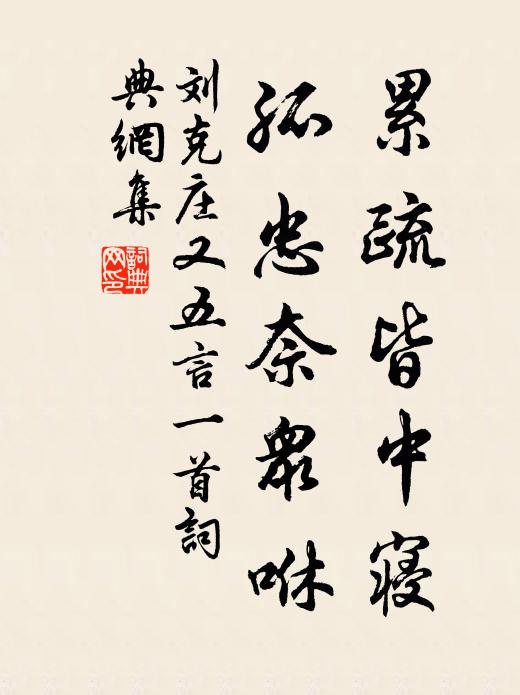 累疏皆中寝
孤忠奈众咻
刘克庄又五言一首詞
典網集
詞典
网印